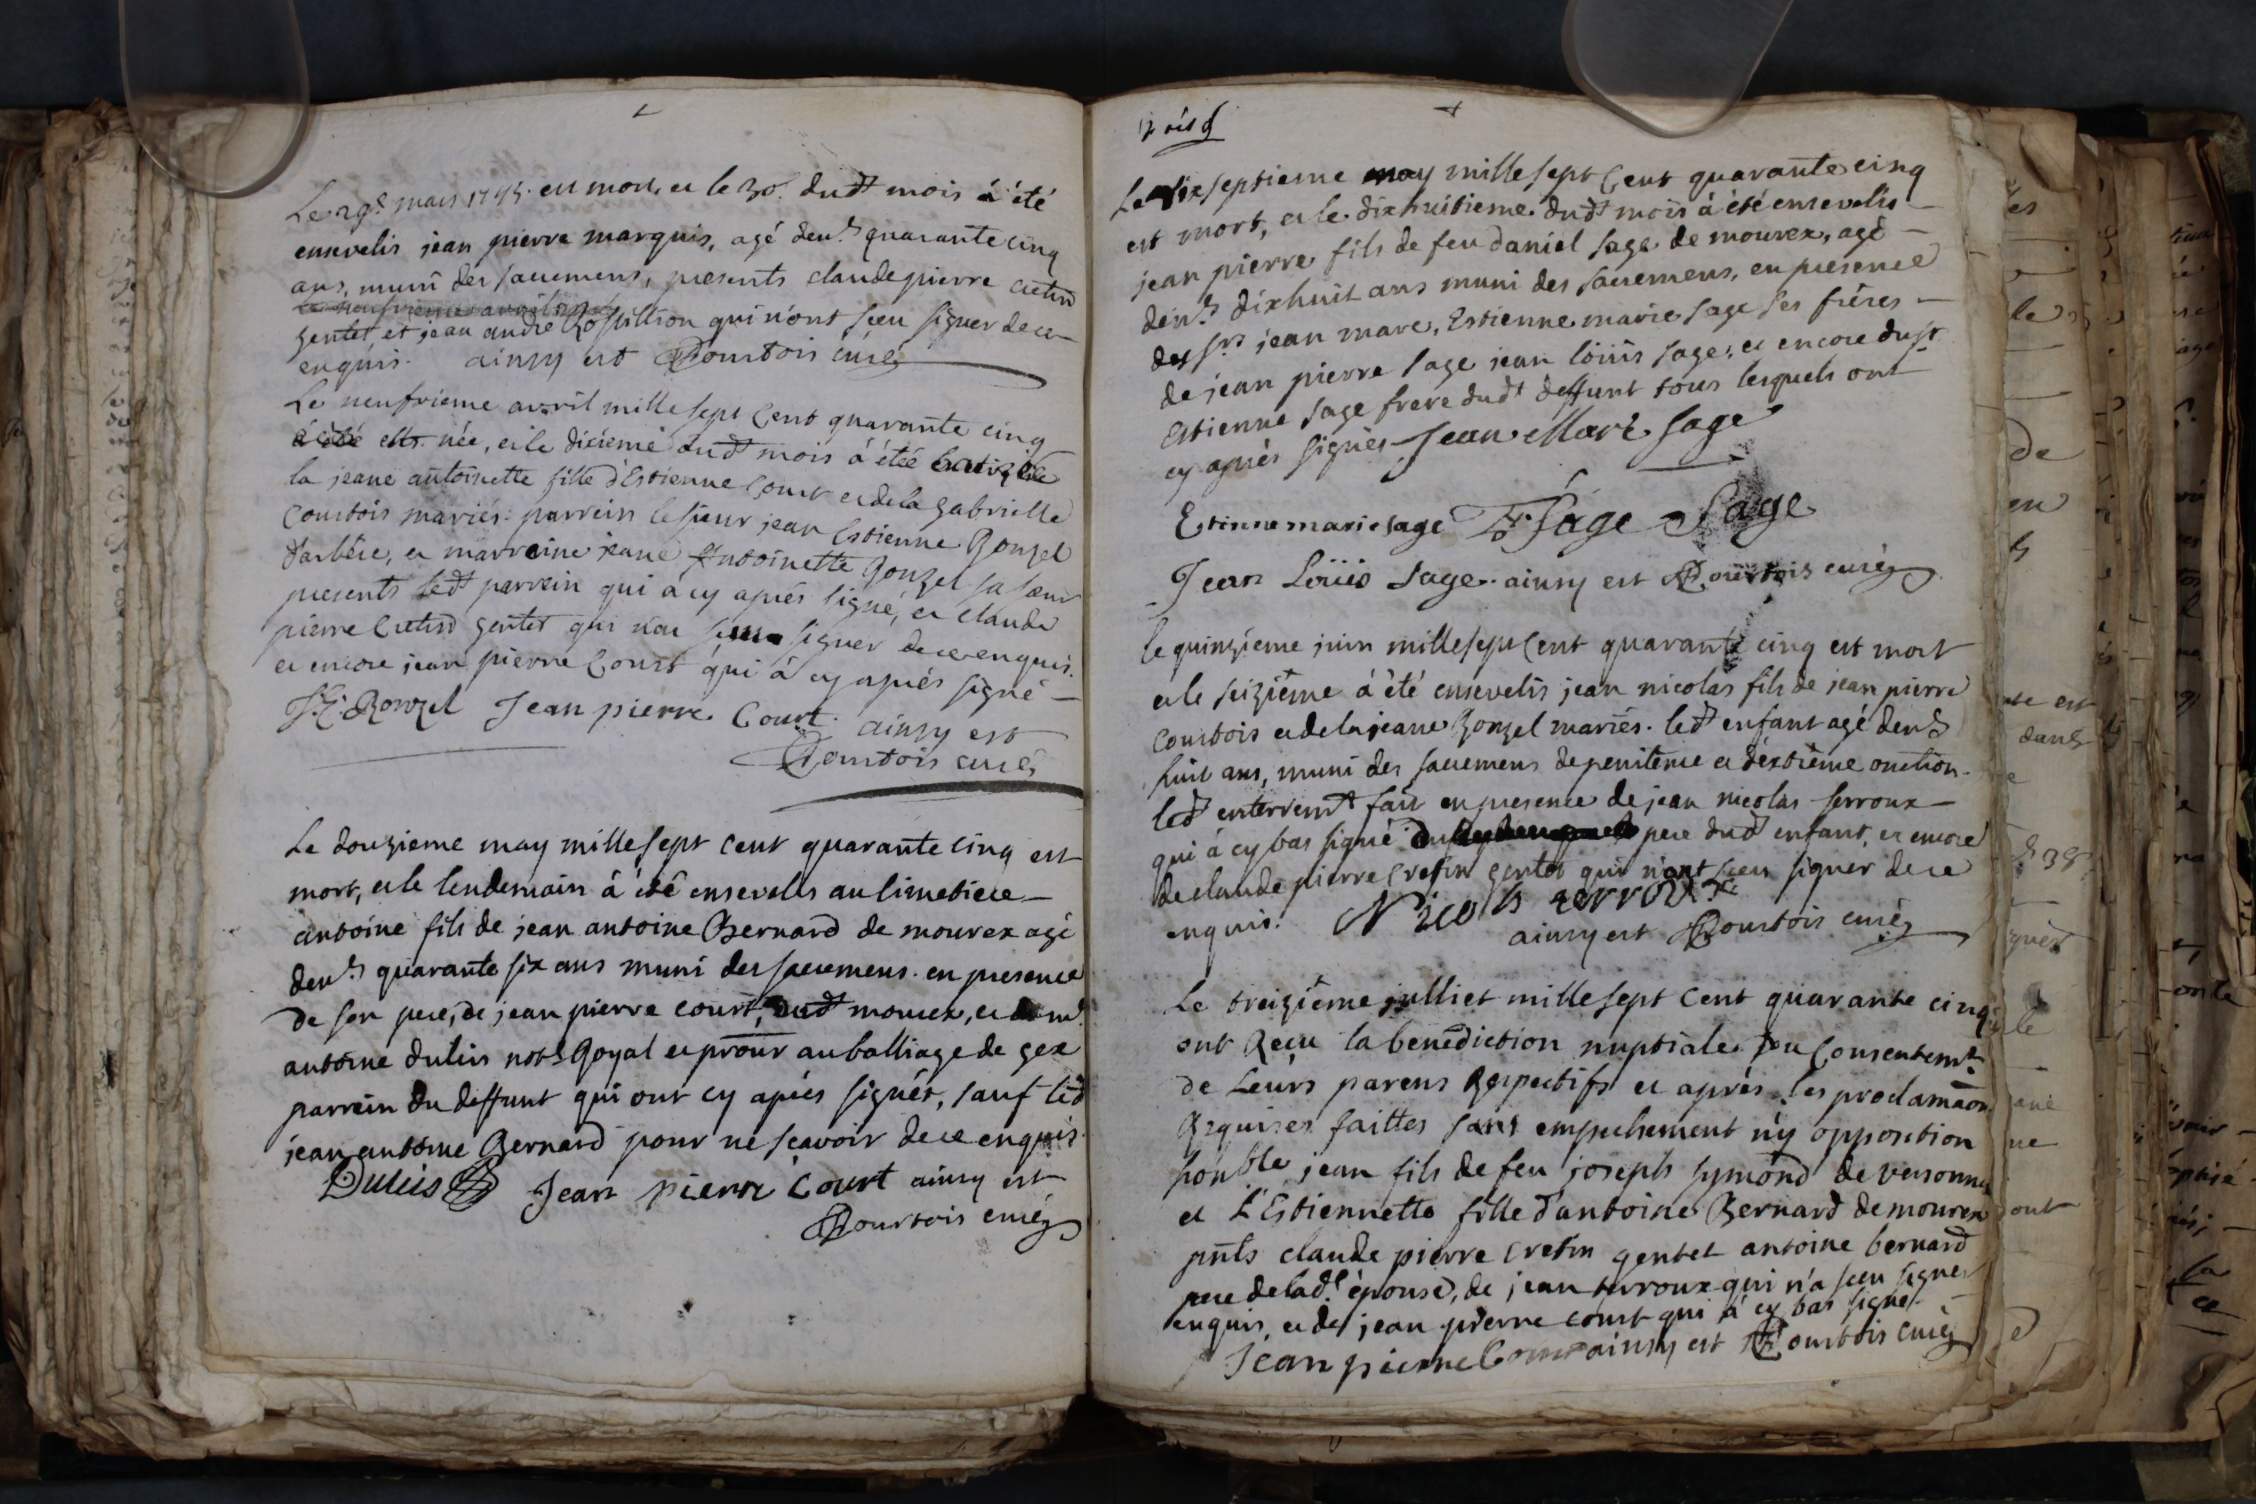 Le 29e mars 1745 est mort, et le 30e dudt mois à été
ensevelis jean pierre marquis, agé denvs quarante cinq
ans, muni des sacremens, presents claude pierre cretin
gentet, et jean andré Rospillion qui n'ont sceu signer de ce
enquis. ainsy est Courtois curé
Le neufvieme avril mille sept cent quarante cinq
est née, et le dixieme dudt mois à été batizée
la jeane antoinette fille d'Estienne Court et de la gabrielle
Courtois mariés. parrein le sieur jean Estienne Rouzel
d'arbére, et marraine jeane Antoinette Rouzel sa sœur
presents ledt parrein qui à cy aprés signé, et claude
pierre Cretin gentet qui n'a sceu signer de ce enquis.
et encore jean pierre Court qui à cy aprés signé
J. E. Rouzel Jean pierre Court. ainsy est
Courtois curé
Le douzieme may mille sept cent quarante cinq est
mort, et le lendemain à été ensevelis au Cimetiere
antoine fils de jean antoine Bernard de mourex agé
denvs quarante six ans muni des sacremens. en presence
de son pere, de jean pierre court, dudt mourex, et de mr
antoine dulin nore Royal et prour au balliage de gex
parrein du deffunt qui ont cy aprés signés, sauf led
jean antoine Bernard pour ne scavoir de ce enquis.
Dulin Jean pierre Court ainsy est
Courtois curé
Le dixseptieme may mille sept Cent quarante cinq
est mort, et le dixhuitieme dudt mois à été ensevelis
jean pierre fils de feu daniel sage de mourex, agé
denvs dixhuit ans muni des sacremens, en presence
des srs jean marc, Estienne marie sage ses fréres
de jean pierre sage jean loüis sage, et encore du sr
Estienne sage frere dudt deffunt tous lesquels ont
cy aprés signés Jean Marc Sage
Estinne marie sage Sage Sage
Jean Loüis Sage. ainsy est Courtois curé
le quinzieme juin mille sept Cent quarante cinq est mort
et le seizième à été ensevelis jean nicolas fils de jean pierre
Courtois et de la jeane Rouzel mariés. ledt enfant agé denvs
huit ans, muni des sacremens de penitence et d'extrème onction.
ledt enterremt fait en presence de jean nicolas serroux
qui à cy bas signé du pere dudt enfant, et encore
de claude pierre Cretin gentet qui n'ont sceu signer de ce
enquis. Nicolas
ainsy est Courtois curé
Le treizième julliet mille sept Cent quarante cinq
ont Reçu la benediction nuptiale du Consentemt
de Leurs parens Respectifs et aprés les proclamaon
Requises faittes sans empechement n'y opposition
honble jean fils de feu joseph symond de versonnex
et L'Estiennette fille d'antoine Bernard de mourex
pnts claude pierre cretin gentet antoine bernard
pere de lade épouse, de jean serroux qui n'a sceu signer
enquis, et de jean pierre court qui à cy bas signé
Jean pierre Court ainsy est Courtois curé